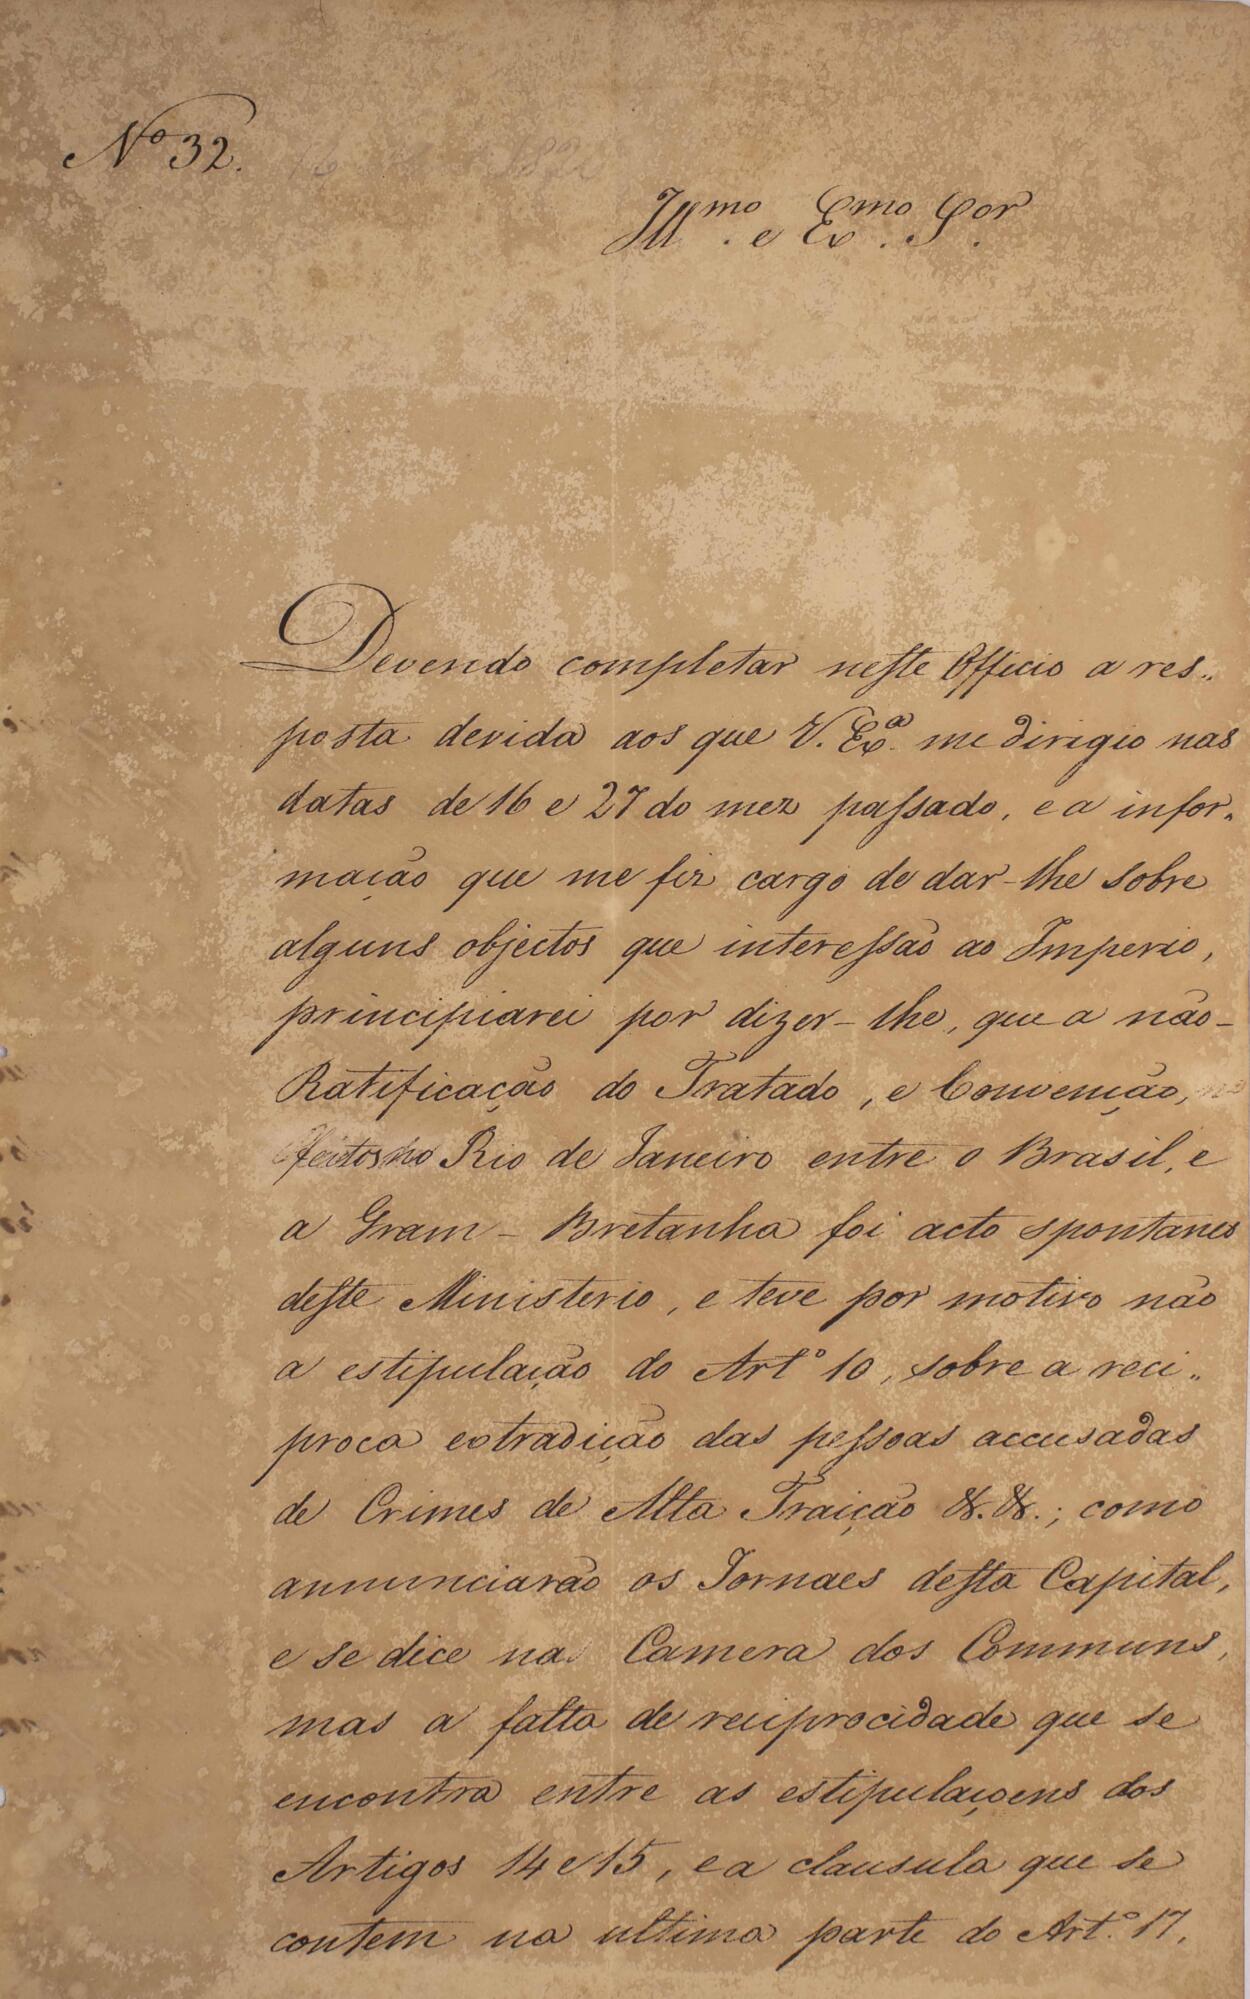 Nº 32.
Ill.mo e Ex.mo S.or
Devendo completar neste Officio a res..
posta devida aos que V. Ex.a me dirigio nas
datas de 16 e 27 do mez passado, e a infor..
mação que me fiz cargo de dar-lhe sobre
alguns objectos que interessão ao Imperio,
principiarei por dizer-lhe, que a não-
Ratificação do Tratado, e Convenção,
feitos no Rio de Janeiro entre o Brasil, e
a Gram-Bretanha foi acto spontaneo
deste Ministerio, e teve por motivo não
a estipulação do Art.º 10, sobre a reci..
proca extradição das pessoas accusadas
de Crimes de Alta Traição &. &.; como
annunciarão os Jornaes desta Capital,
e se dice na Camera dos Communs,
mas a falta de reciprocidade que se
encontra entre as estipulaçoens dos
Artigos 14 e 15, e a clausula que se
contem na ultima parte do Art.º 17.